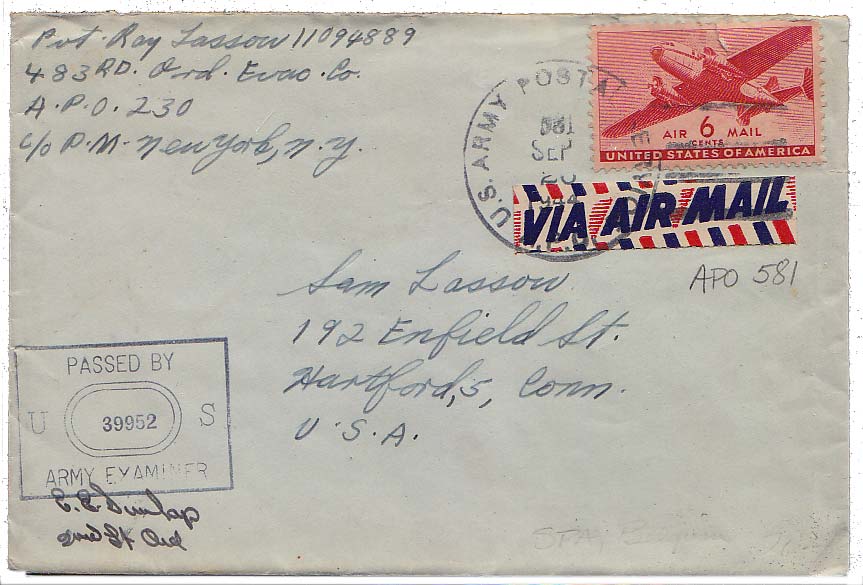 Pvt. Ray Lassow 11094889
483RD. Ord. Evac. Co.
A.P.O. 230
c/o P.M. New York, N.Y.
U.S. ARMY POSTAL
581
SEP
20
1944
AIR 6 MAIL
CENTS
UNITED STATES OF AMERICA
VIA AIR MAIL
APO 581
Sam Lassow
192 Enfield St.
Hartford, 5, Conn.
U.S.A.
PASSED BY
U 39952 S
ARMY EXAMINER
2nd Lt Ord
Belgium